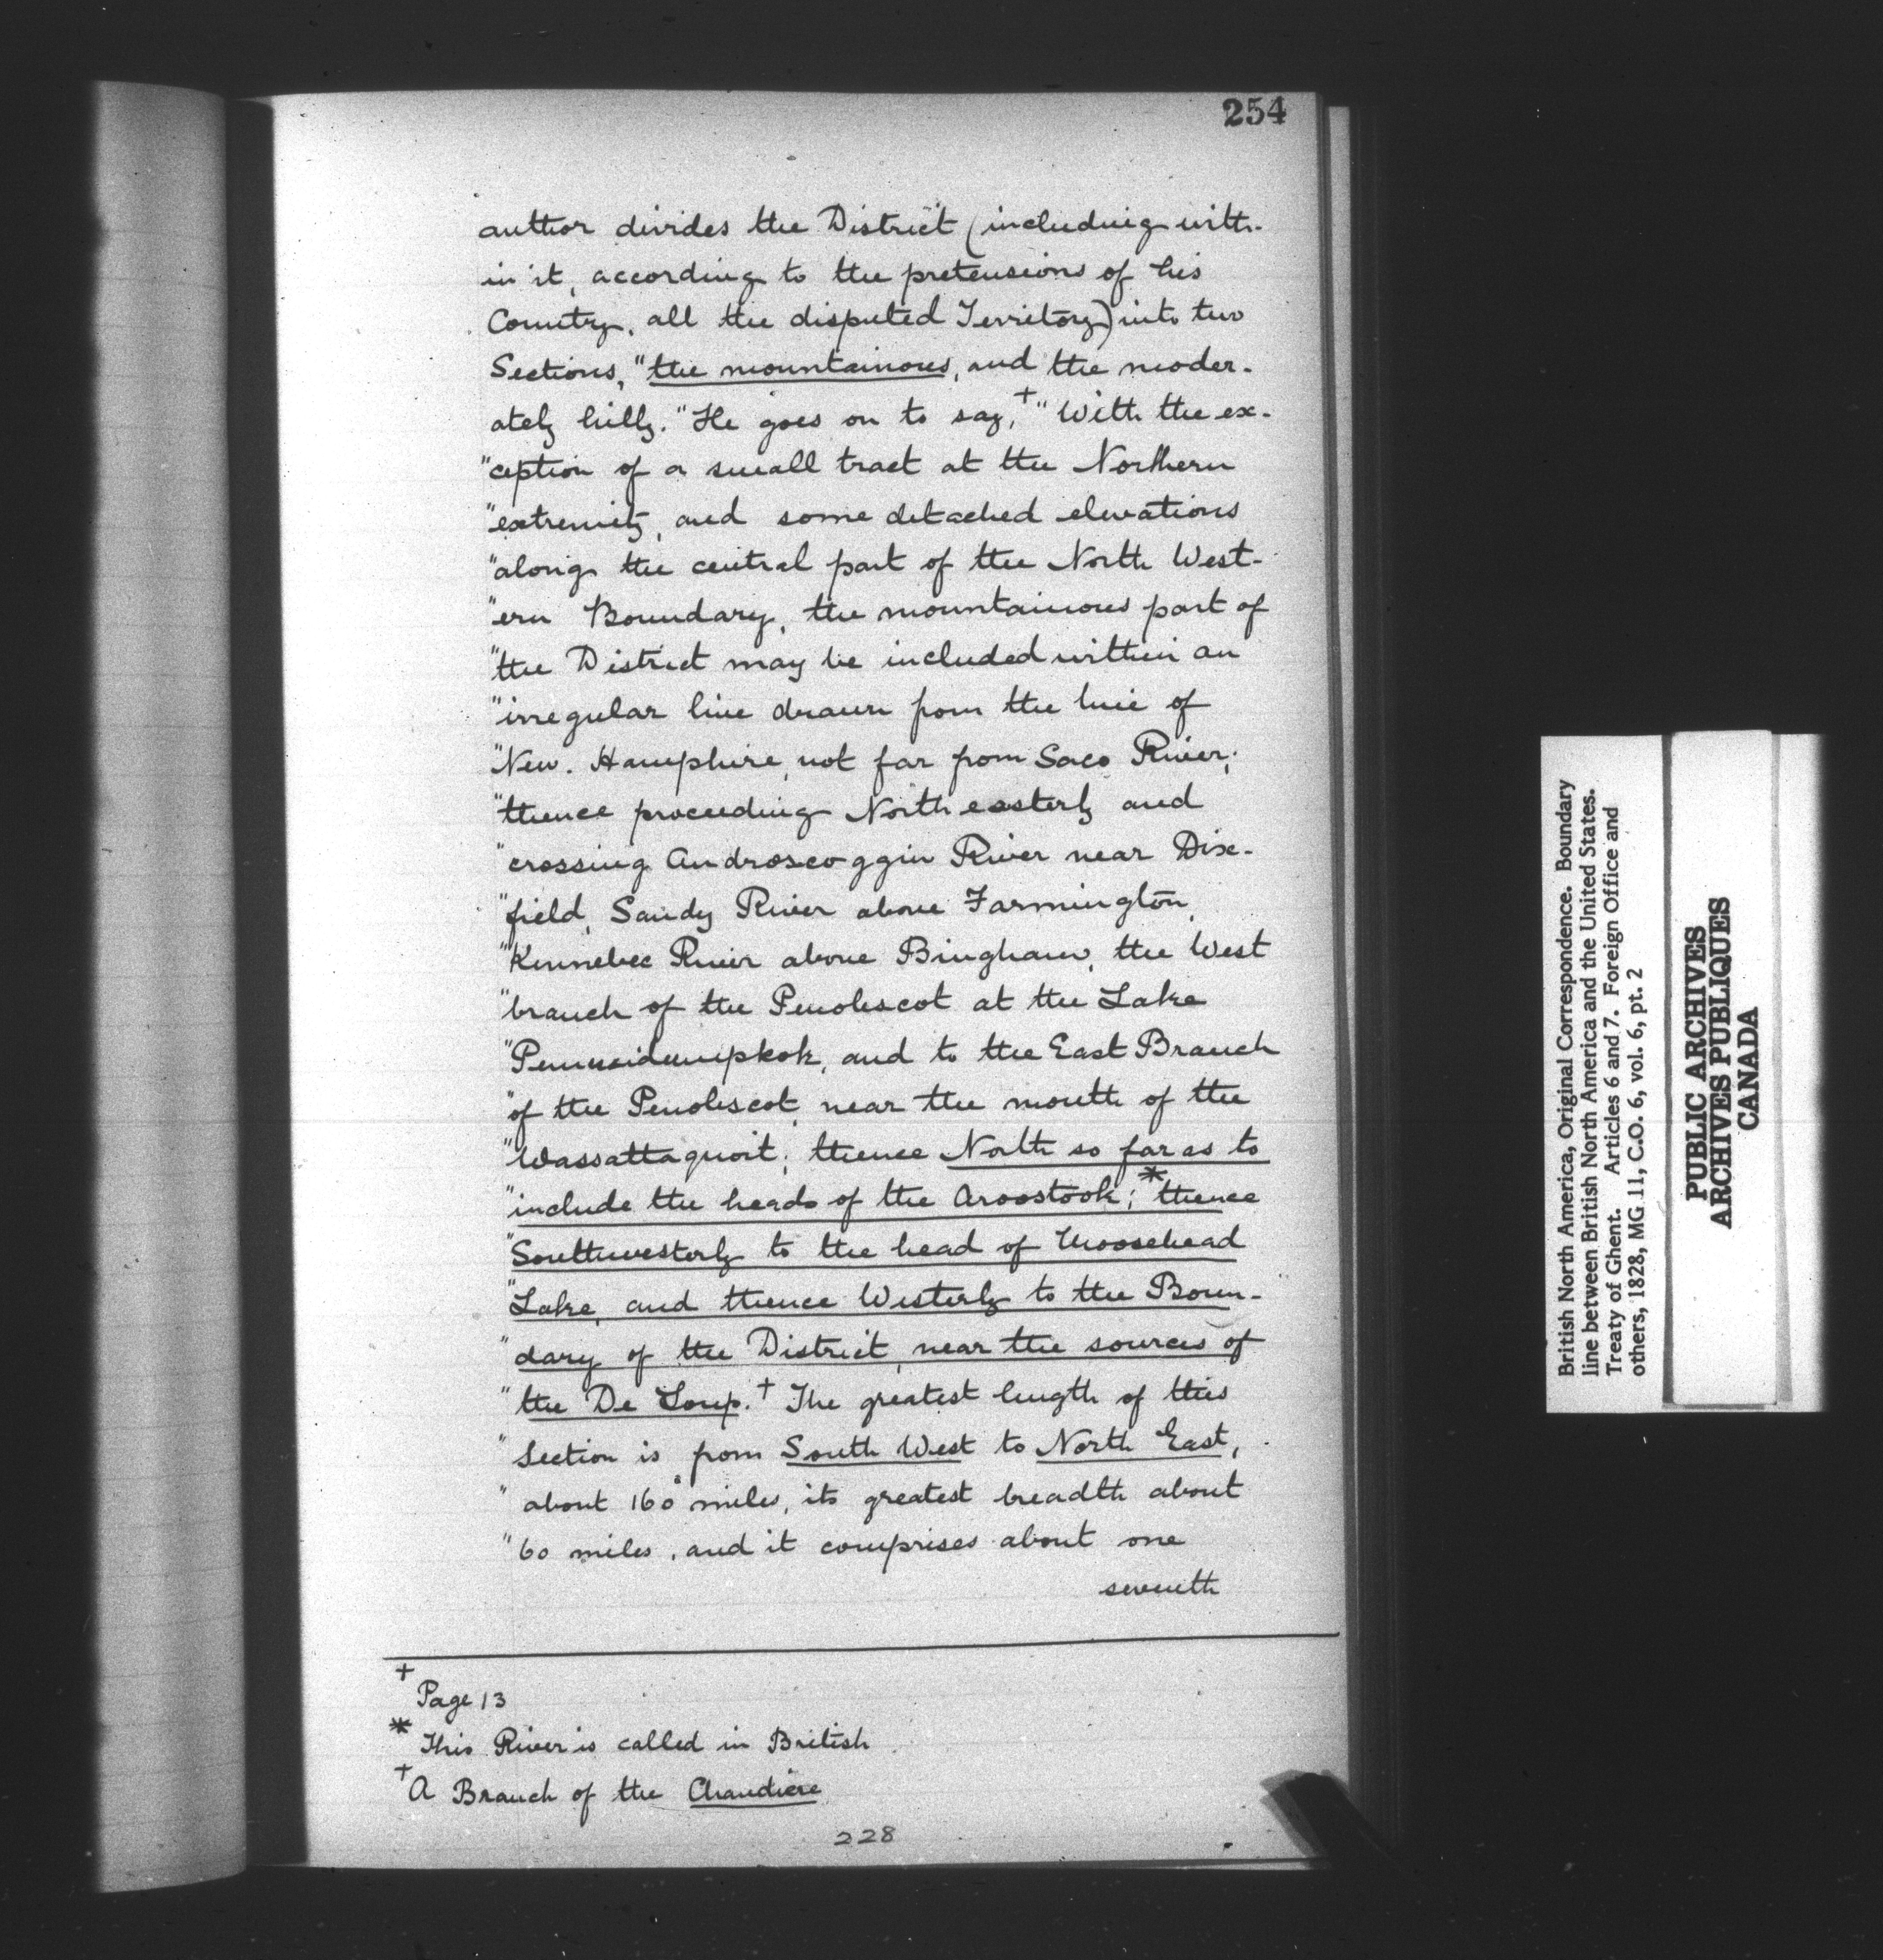 254
author divides the District (including with-
in it, according to the pretensions of his
Country, all the disputed Territory) into two
Sections, "the mountainous, and the moder-
ately hilly." He goes on to say,+ "With the ex-
"ception of a small tract at the Northern
"extremity, and some detached elevations
"along the central part of the North West-
"ern Boundary, the mountainous part of
"the District may be included within an
"irregular line drawn from the line of
"New. Hampshire, not far from Saco River;
"thence proceeding North easterly and
"crossing Androscoggin River near Dix-
"field, Sandy River above Farmington,
"Kennebec River above Bingham, the West
"branch of the Penobscot at the Lake
and to the East Branch
"of the Penobscot, near the mouth of the
"Wassattaquoit; thence North so far as to
"include the heads of the Aroostook;* thence
"Southwesterly to the head of Moosehead
"Lake, and thence Westerly to the Boun-
"dary of the District, near the sources of
"the De Loup.+ The greatest length of this
"Section is from South West to North East,
"about 160 miles, its greatest breadth about
"60 miles, and it comprises about one
seventh
+ Page 13
* This River is called in British
+ A Branch of the Chaudiere
228
British North America, Original Correspondence. Boundary
line between British North America and the United States.
Treaty of Ghent. Articles 6 and 7. Foreign Office and
others, 1828, MG 11, C.O. 6, vol. 6, pt. 2
PUBLIC ARCHIVES
ARCHIVES PUBLIQUES
CANADA